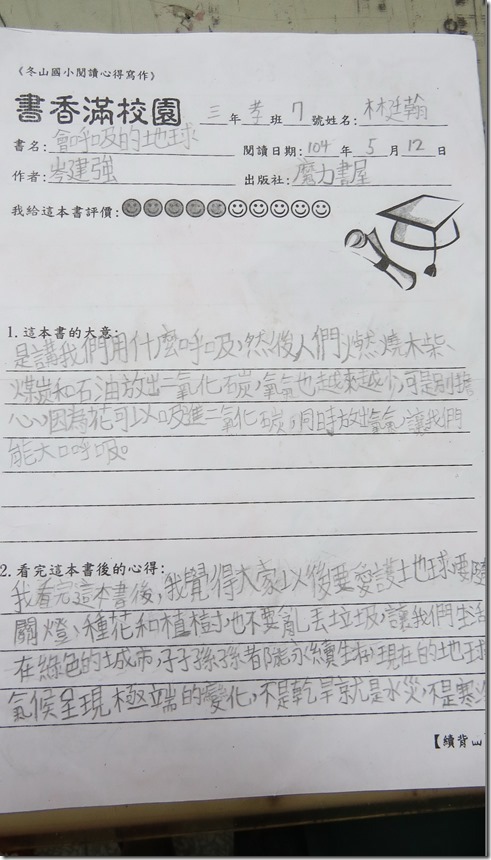 《冬山國小閱讀心得寫作》
書香滿校園 三年孝班7號姓名:林廷翰
書名:會呼吸的地球 閱讀日期:104年5月12日
作者:岑建強 出版社:魔力書屋
我給這本書評價:
1.這本書的大意:
是講我們用什麼呼吸,然後人們燃燒木柴、
煤炭和石油放出二氧化碳,氧氣也越來越少,可是別擔
心,因為花可以吸進二氧化碳,同時放出氧氣,讓我們
能大口呼吸。
2.看完這本書後的心得:
我看完這本書後,我覺得大家以後要愛護地球要隨
關燈、種花和植樹,也不要亂丟垃圾,讓我們生活
在綠色的城市,子子孫孫都能永續生存,現在的地球
氣候呈現極端的變化,不是乾旱就是水災,不是寒冷
【續背